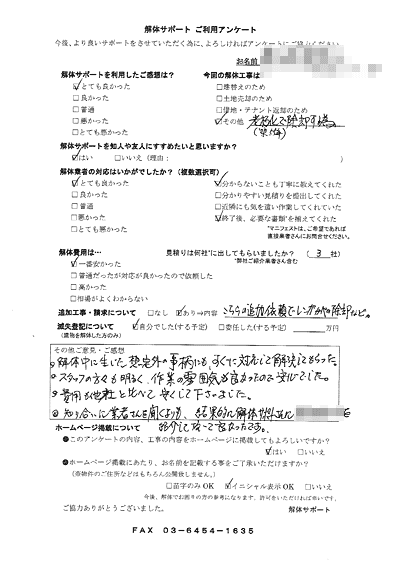 解体サポート ご利用アンケート
今後、より良いサポートをさせていただく為に、よろしければアンケートにご協力ください。
お名前
解体サポートを利用したご感想は? 今回の解体工事は
☑とても良かった □建替えのため
□良かった □土地売却のため
□普通 □借地・テナント返却のため
□悪かった ☑その他 老朽化で除却する為
□とても悪かった
解体サポートを知人や友人にすすめたいと思いますか?
☑はい □いいえ(理由: )
解体業者の対応はいかがでしたか?(複数選択可)
☑とても良かった ☑分からないことも丁寧に教えてくれた
□良かった □分かりやすい見積りを提出してくれた
□普通 □近隣にも気を遣い作業してくれていた
□悪かった ☑終了後、必要な書類*を揃えてくれた
□とても悪かった *マニフェストは、ご希望であれば
直接業者さんにお問合せください。
解体費用は… 見積りは何社*に出してもらいましたか? ( 3 社)
☑一番安かった *弊社ご紹介業者さん含む
□普通だったが対応が良かったので依頼した
□高かった
□相場がよくわからない
追加工事・請求について □なし ☑あり⇒内容 こちらの追加依頼で
滅失登記について ☑自分でした(する予定) □委任した(する予定) 万円
(建物を解体した方のみ)
その他ご意見・ご感想
・解体中に生じた想定外の事柄にも、すぐに対応して解決してもらった。
・スタッフの方々も明るく、作業の雰囲気も良かったので安心でした。
・費用も他社と比べて安くして下さいました。
・知り合いに業者さんを聞くよりも、結果的に解体サポート
ホームページ掲載について
●このアンケートの内容、工事の内容をホームページに掲載してもよろしいですか?
☑はい □いいえ
●ホームページ掲載にあたり、お名前を記載する事をご了承いただけますか?
(※物件のご住所などはもちろん公開致しません。)
□苗字のみOK ☑イニシャル表示OK □いいえ
今後、解体でお困りの方の参考になります。許可をいただければ幸いです。
ご協力ありがとうございました。 解体サポート
FAX 03-6454-1635